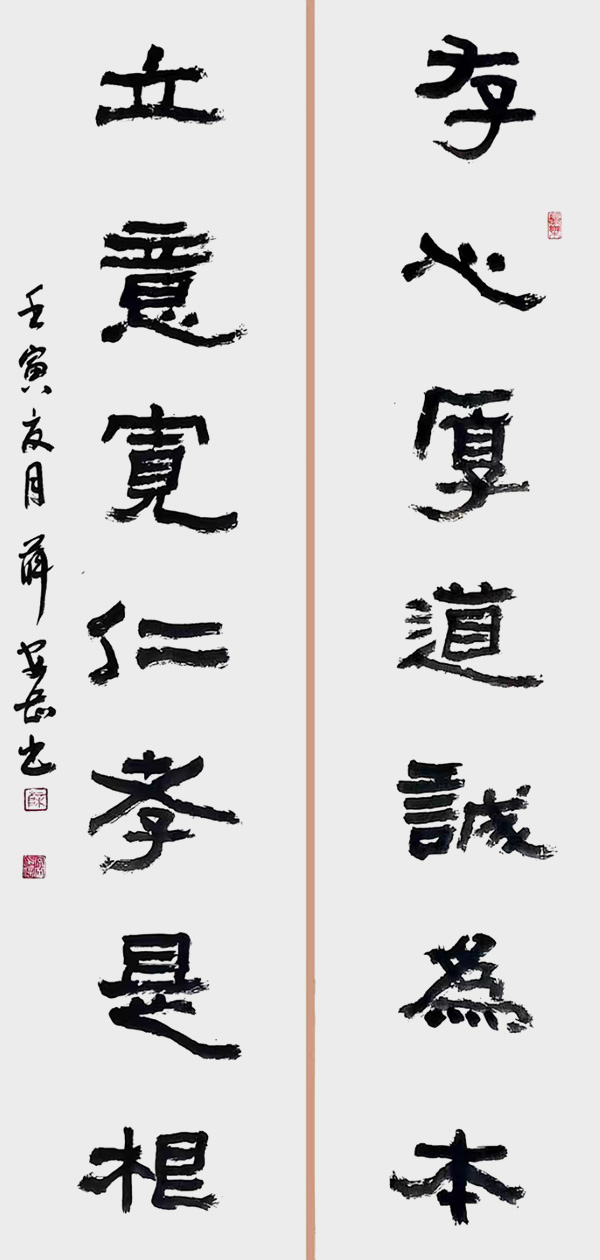 存心厚道誠為本
立意寬仁孝是根
壬寅夏月薛书